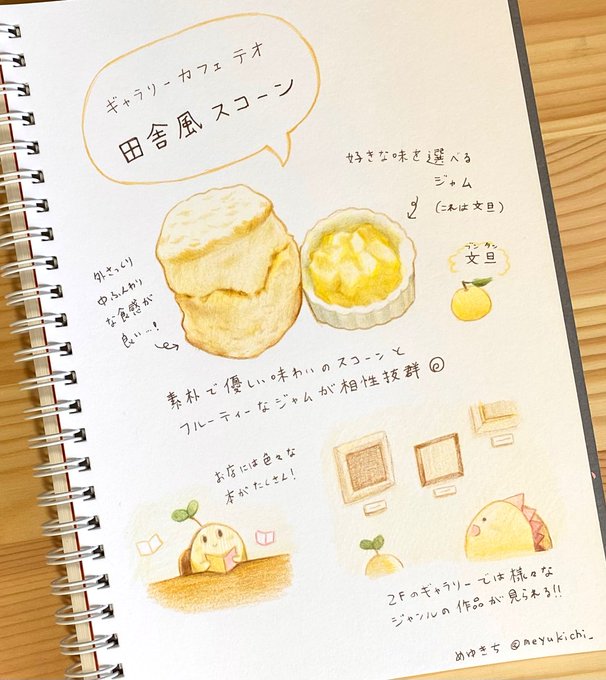 ギャラリーカフェ テオ
田舎風 スコーン
好きな味を選べる
ジャム
(これは文旦)
ブンタン
文旦
外さっくり
中ふんわり
な食感が
良い…!
素朴で優しい味わいのスコーンと
フルーティーなジャムが相性抜群◎
お店には色々な
本がたくさん!
2Fのギャラリーでは様々な
ジャンルの作品が見られる!!
めゆきち @meyukichi_